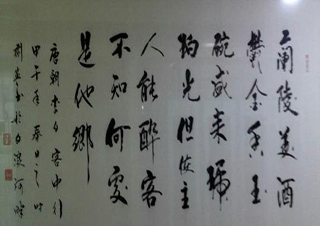 兰陵美酒
郁金香玉
碗盛来琥
珀光但使主
人能醉客
不知何处
是他乡
唐朝李白客中行
甲午年春日之时